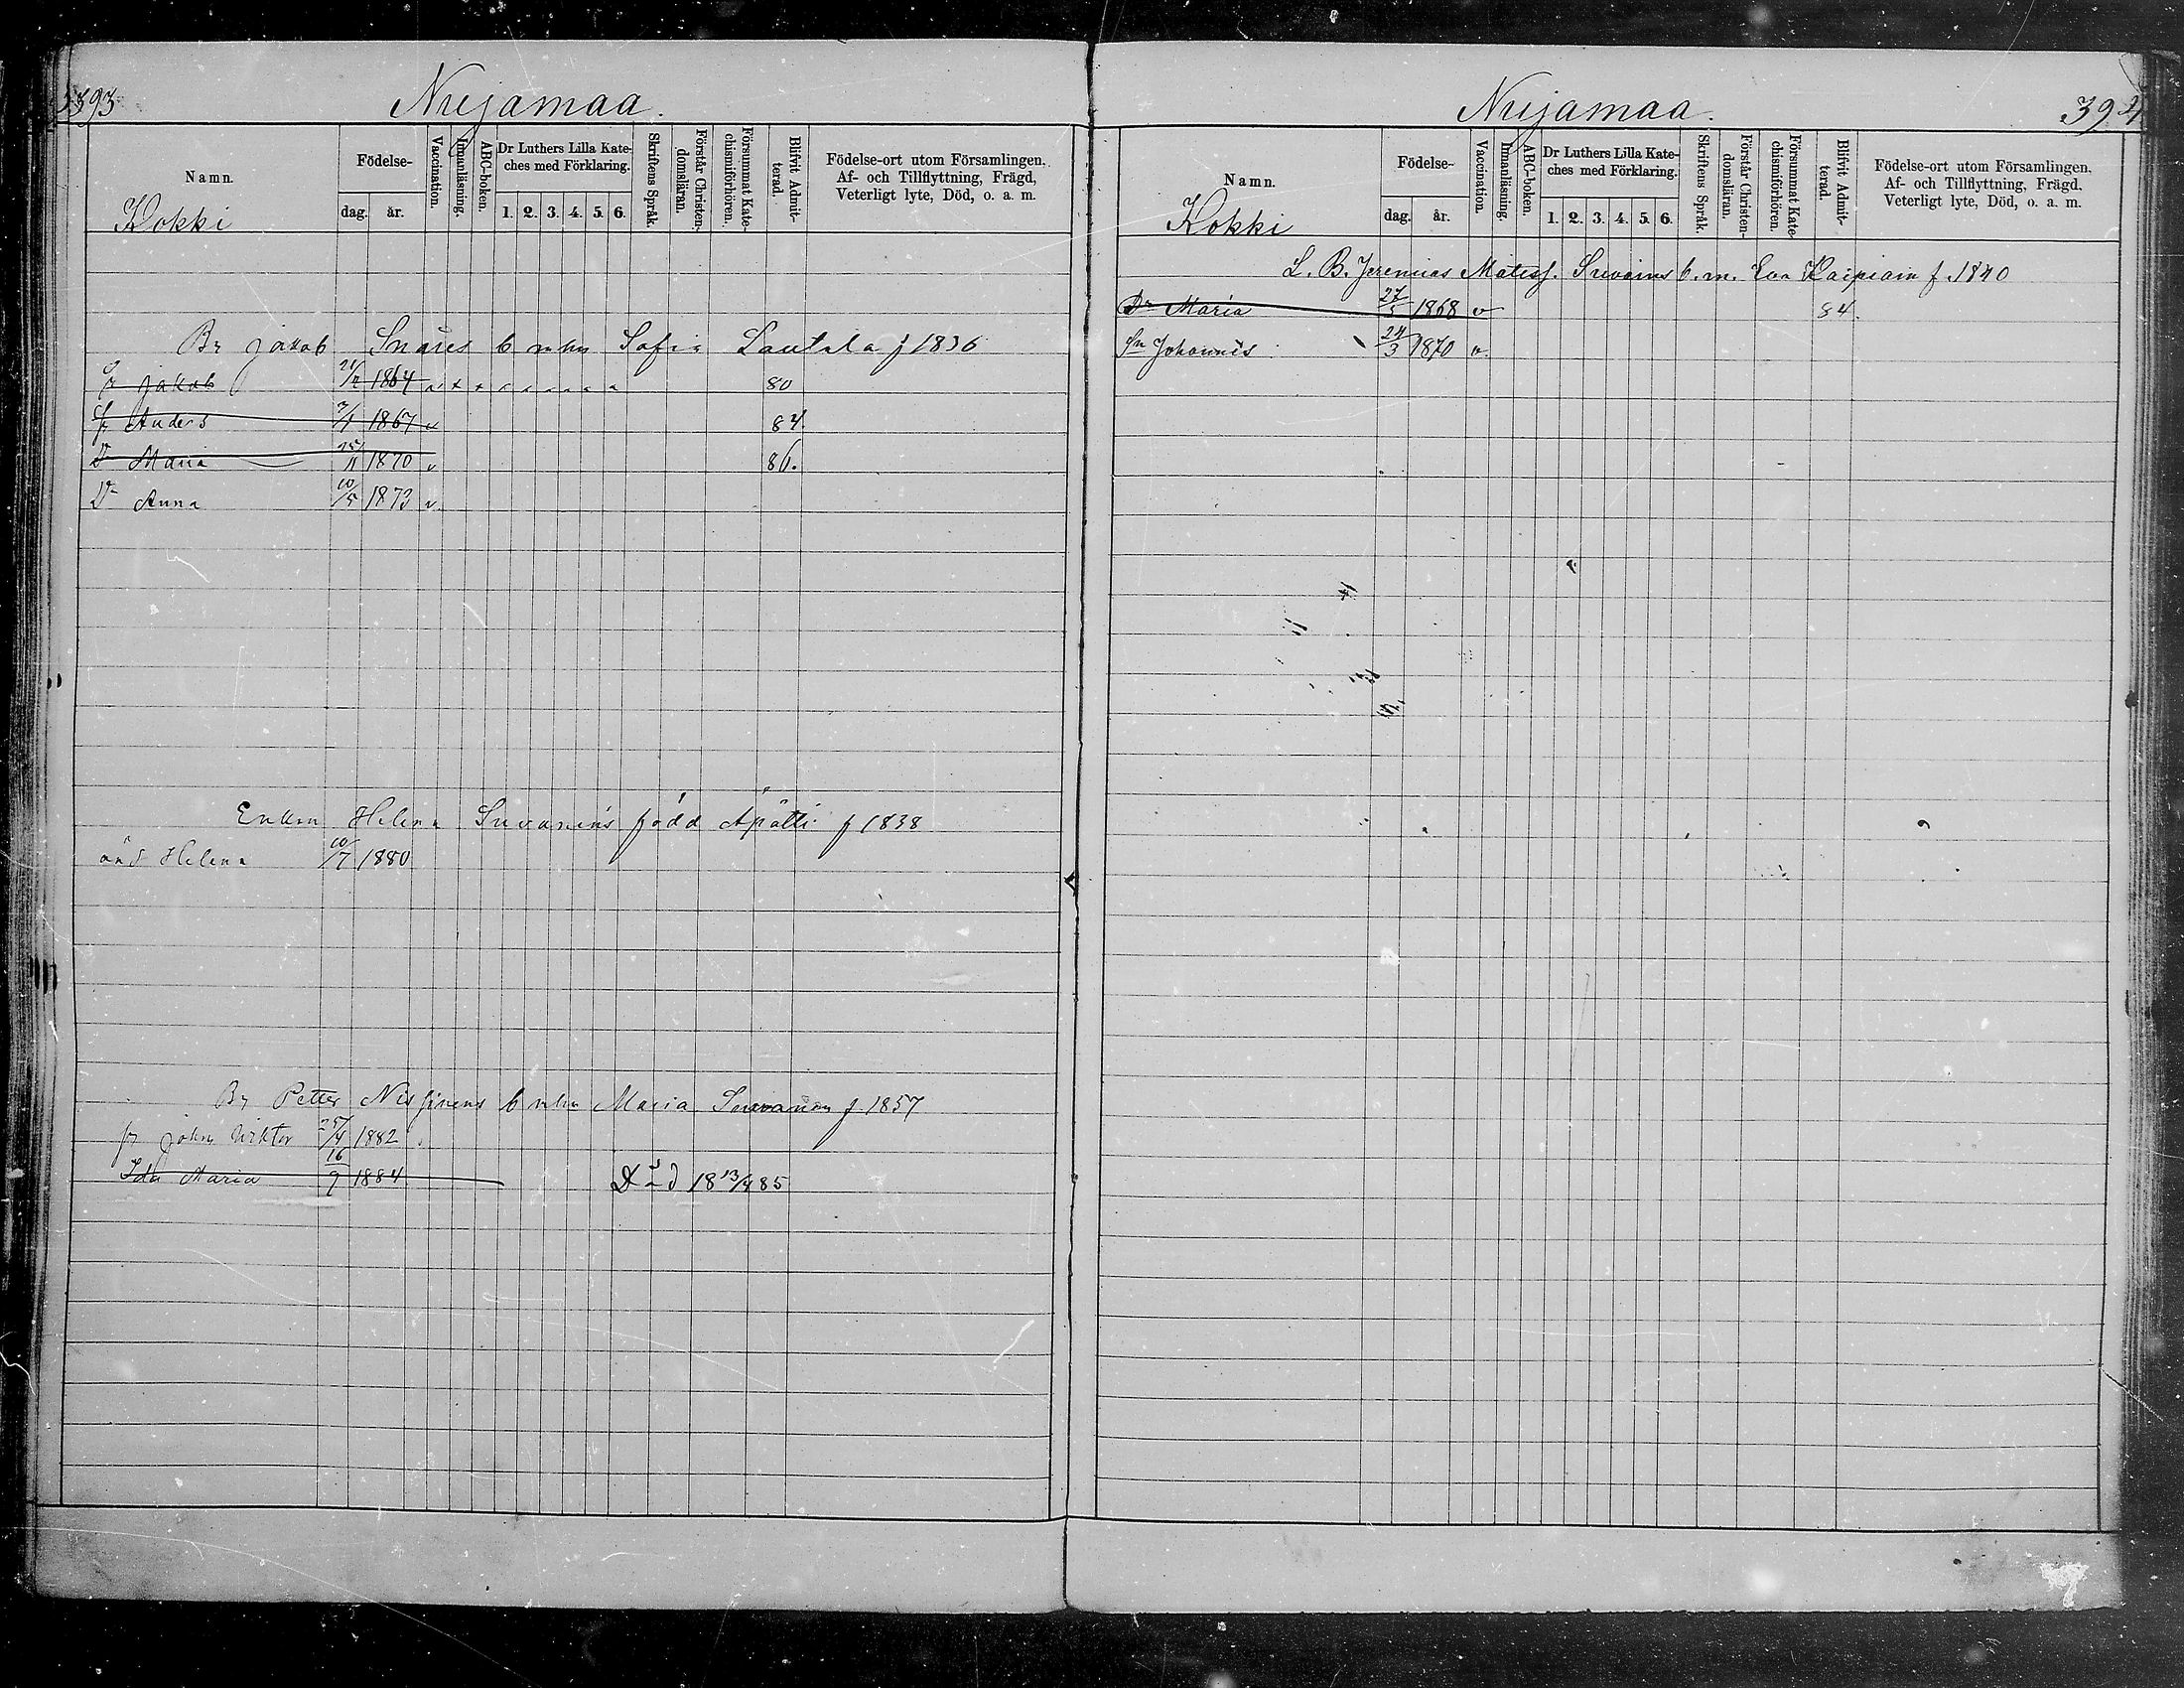 393
Nuijamaa.
Namn.
Födelse-
dag.
år.
Vaccination.
Innanläsning.
ABC-boken.
Dr Luthers Lilla Kate-
ches med Förklaring.
1. 2. 3. 4. 5. 6.
Skriftens Språk.
Förstår Christen-
domsläran.
Försummat Kate-
chismiförhören.
Blifvit Admit-
terad.
Födelse-ort utom Församlingen.
Af- och Tillflyttning, Frägd,
Veterligt lyte, Död, o. a. m.
Kokki
Br Jakob Snäres b mhu Sofia Lautala f 1836
Jakob 21/12 1864 80
Anders 3/1 1867 v 84.
Dr Maria 25/11 1870 v 86.
Dr Anna 10/5 1873 v
Enkan Helena Suvanens född Apätti f 1838
Helena 10/7 1880
Br Petter Nissinens b mhu Maria Suvanen f 1857
Johan Viktor 25/4 1882
Ida Maria 16/9 1884 Död 18 13/4 85
Nuijamaa.
394
Namn.
Födelse-
dag.
år.
Vaccination.
Innanläsning.
ABC-boken.
Dr Luthers Lilla Kate-
ches med Förklaring.
1. 2. 3. 4. 5. 6.
Skriftens Språk.
Förstår Christen-
domsläran.
Försummat Kate-
chismiförhören.
Blifvit Admit-
terad.
Födelse-ort utom Församlingen.
Af- och Tillflyttning, Frägd,
Veterligt lyte, Död, o. a. m.
Kokki
L. B. Jeremias Matss. Suvoins b. m. Eva Kaipiain f. 1840
Dr Maria 27/5 1868 v 84.
Sn Johannes 24/3 1870 v.